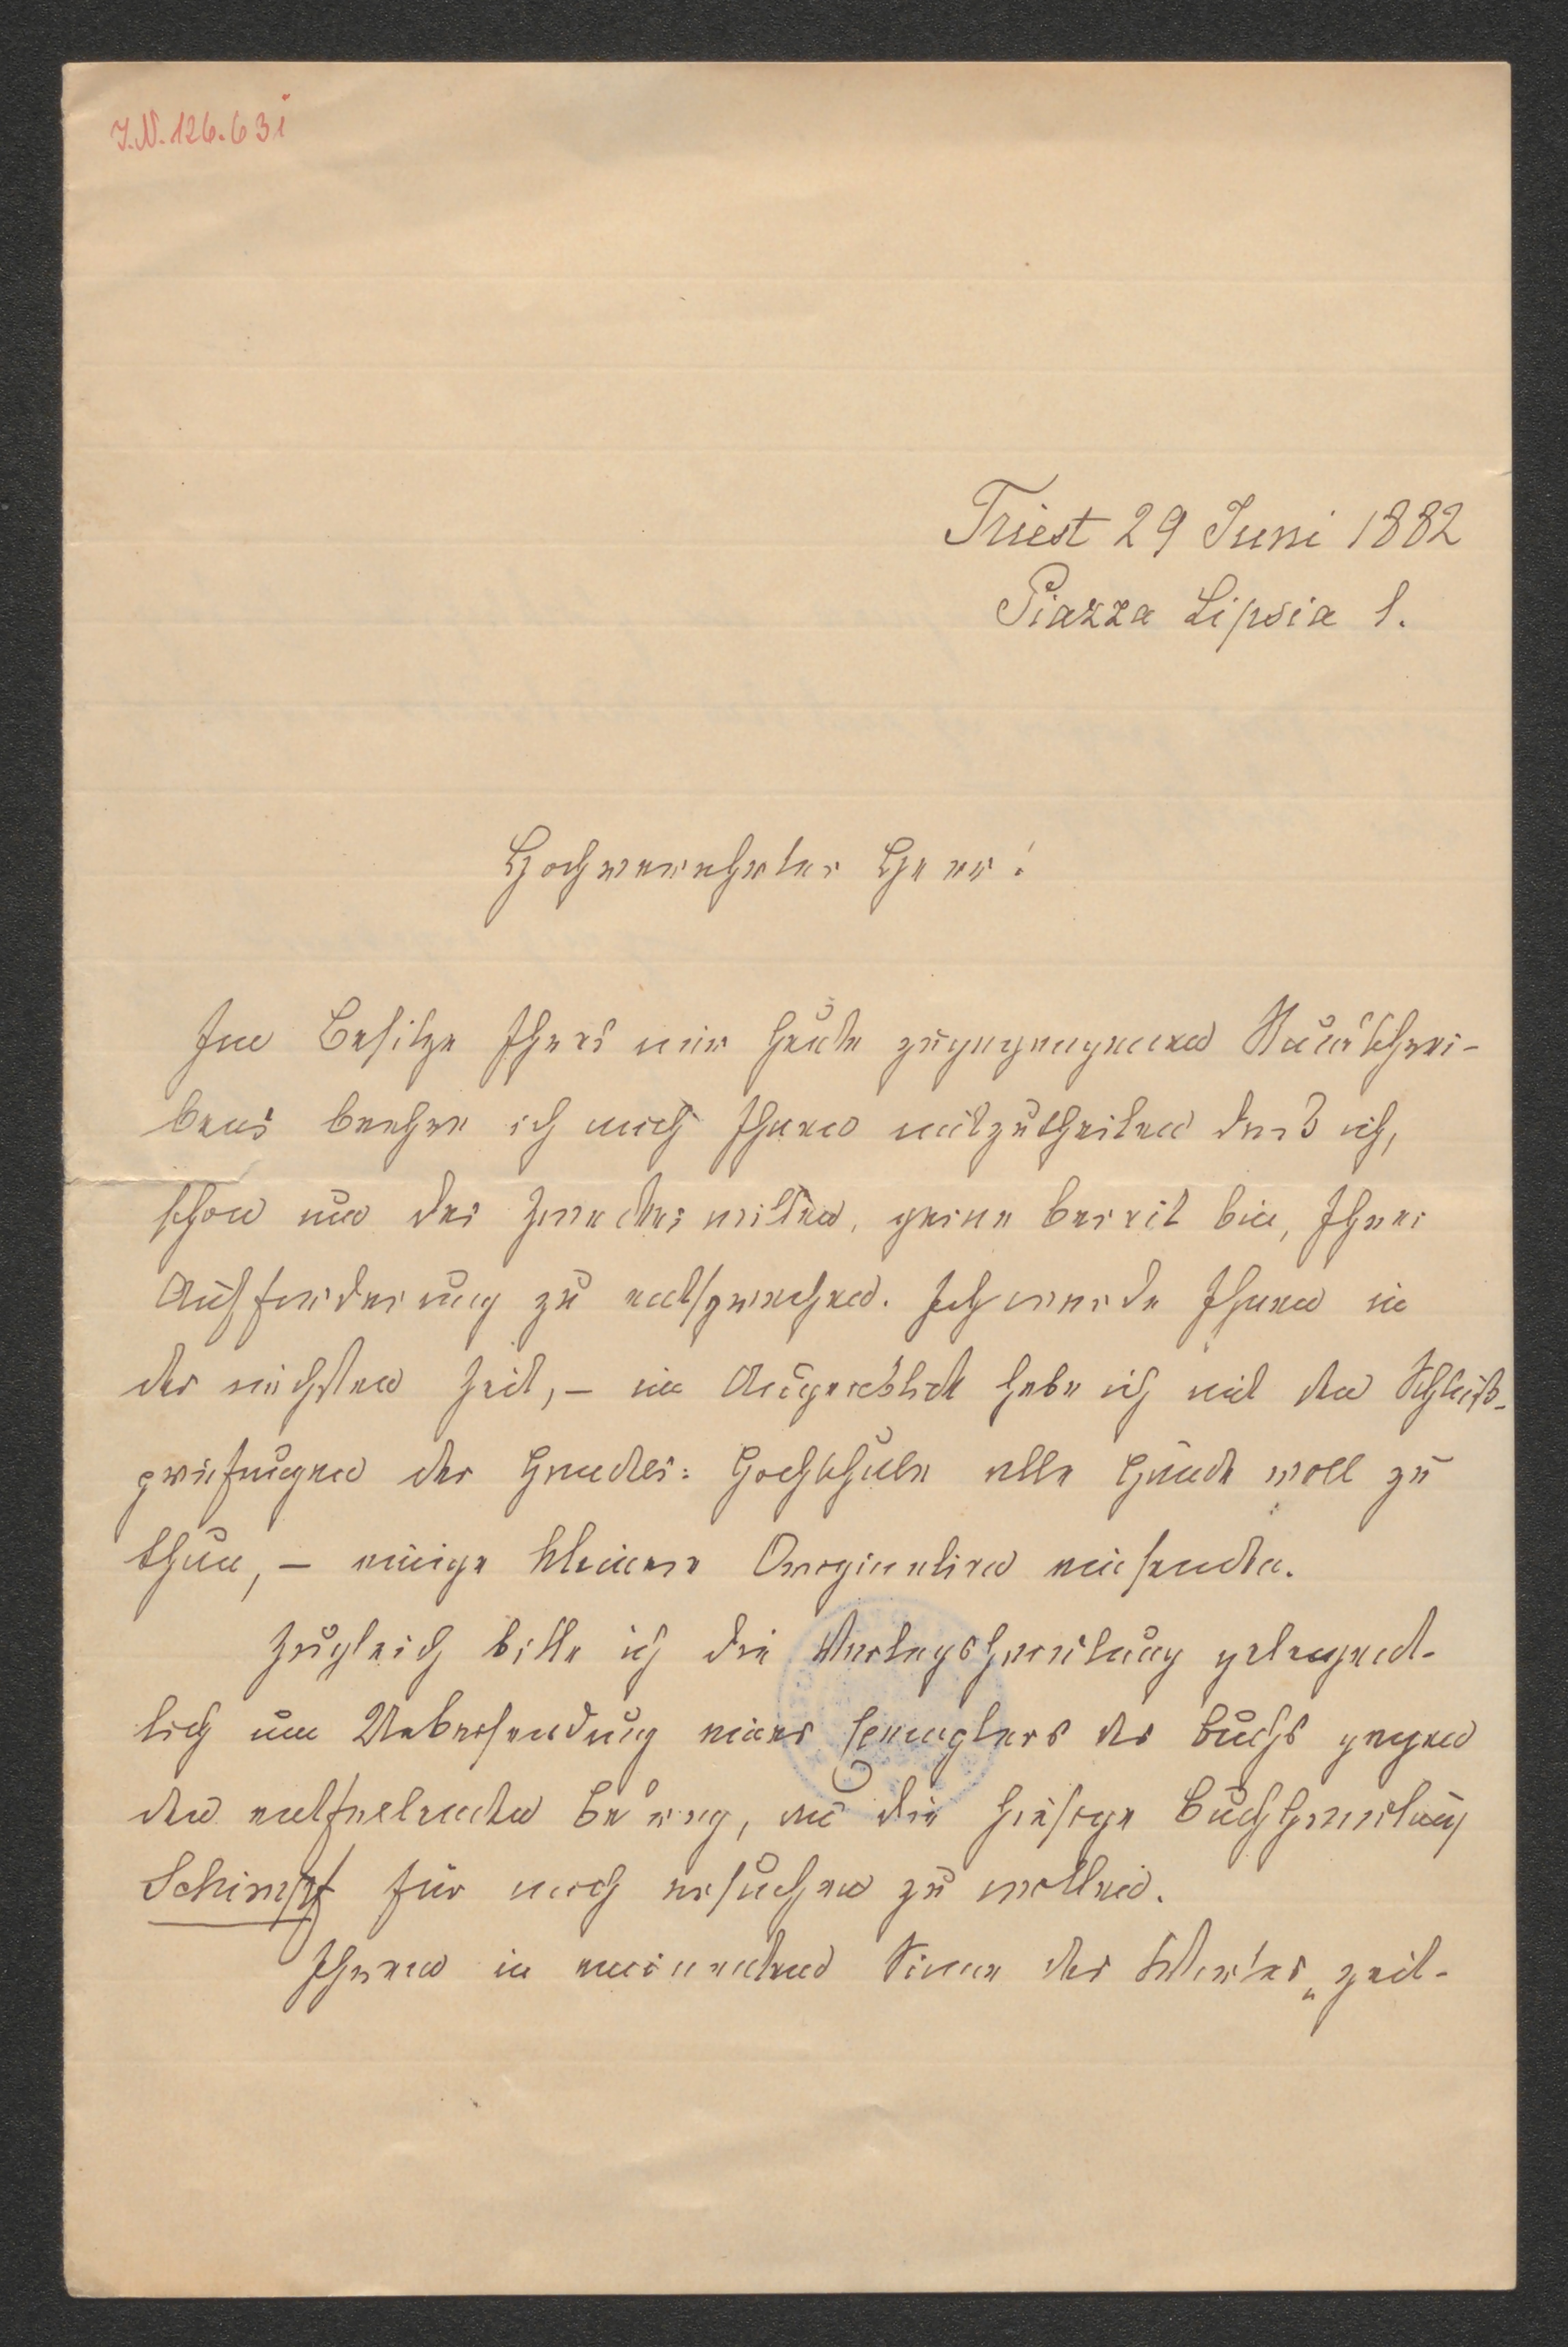 I.N. 126.631
Triest 29 Juni 1882
Piazza Lipsia 1.
Hochverehrter Herr!
Im Besitze Ihres mir heute zugegangenen Rundschrei-
bens beehre ich mich Ihnen mitzutheilen dass ich,
schon um des Zweckes willen, gerne bereit bin, Ihrer
Aufforderung zu entsprechen. Ich werde Ihnen in
der nächsten Zeit, – im Augenblick habe ich mit den Schluß-
prüfungen der Handels-Hochschule alle Hände voll zu
thun, – einige kleinere Originalien einsenden.
Zugleich bitte ich die Verlagshandlung gelegent-
lich um Uebersendung eines Exemplars des Buchs gegen
den entfallenden Betrag, an die hiesige Buchhandlung
Schimpff für mich ersuchen zu wollen.
Ihnen in eminenten Sinne des Wortes „zeit-